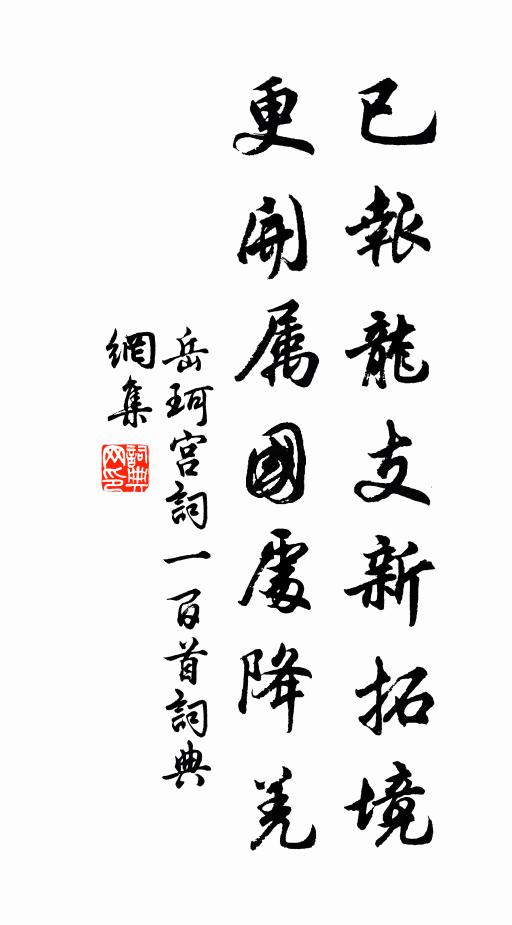 已報龍支新拓境
更開属國處降羌
岳珂宮詞一百首詞典
網集
詞典
网印